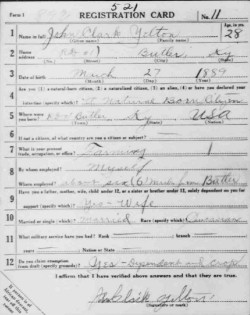 Form 1
521
REGISTRATION CARD No. 11
1 Name in full John Clark Yelton Age, in yrs. 28
(Given name) (Family name)
2 Home address R.D. #1 Butler, Ky
3 Date of birth March 27 1889
(Month) (Day) (Year)
4 Are you (1) a natural-born citizen, (2) a naturalized citizen, (3) an alien, (4) or have you declared your intention (specify which)? Natural Born Citizen
5 Where were you born? Butler Ky USA
6 If not a citizen, of what country are you a citizen or subject?
7 What is your present trade, occupation, or office? Farming 1
8 By whom employed? Myself
Where employed? about six (6) miles from Butler
9 Have you a father, mother, wife, child under 12, or a sister or brother under 12, solely dependent on you for support (specify which)? Yes - Wife
10 Married or single (which)? Married Race (specify which)? Caucasian
11 What military service have you had? Rank ; branch
years ; Nation or State
12 Do you claim exemption from draft (specify grounds)? Yes - Dependent and crops
I affirm that I have verified above answers and that they are true.
John Clark Yelton
(Signature or mark)